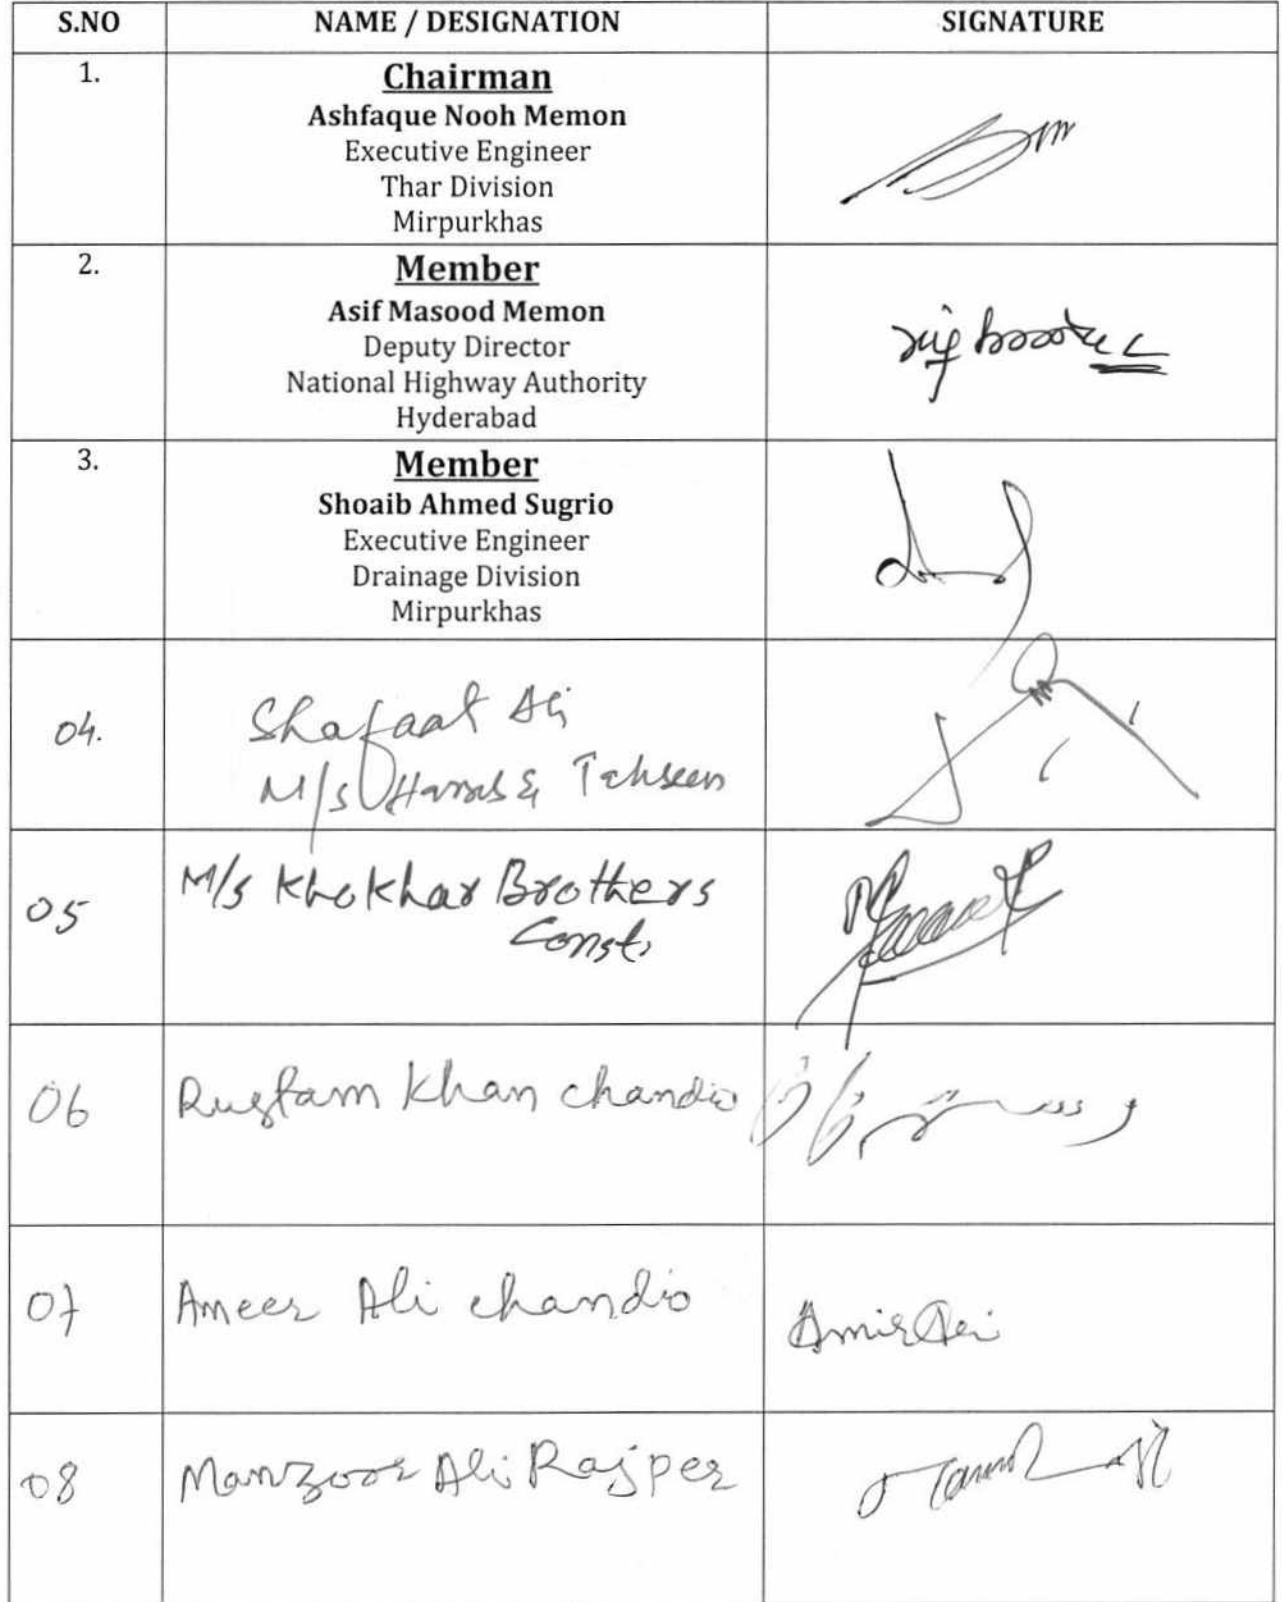 S.NO NAME / DESIGNATION SIGNATURE
1. Chairman
Ashfaque Nooh Memon
Executive Engineer
Thar Division
Mirpurkhas
2. Member
Asif Masood Memon
Deputy Director
National Highway Authority
Hyderabad
3. Member
Shoaib Ahmed Sugrio
Executive Engineer
Drainage Division
Mirpurkhas
04. Shafaat Ali
M/s & Tehseen
05 M/s Khokhar Brothers
Const.
06 Rustam Khan chandio
07 Ameer Ali chandio Amir Ali
08 Manzoor Ali Rajper